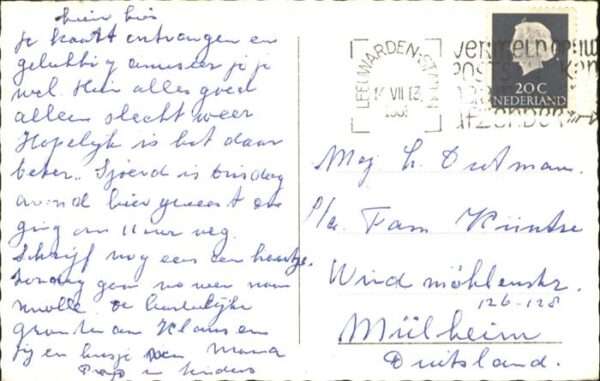 Je kaart ontvangen en
gelukkig amuseer jij je
wel. Hier alles goed
alleen slecht weer
Hopelijk is het daar
beter.. Sjoerd is dinsdag
avond hier geweest en
ging om 11 uur weg.
Schrijf nog eens een keertje.
gaan we weer naar
de hartelijke
groeten aan Klaus en
jij en kusje van Mama
Paps en kinders
LEEUWARDEN-STATION
VII 12
VERMELD OP UW
POSTSTUKKEN
AFZENDER
20 C
NEDERLAND
Mej. h. Dutman.
p/a. Fam Küntse
Windmöhlenstr.
126-128
Mülheim
Duitsland.